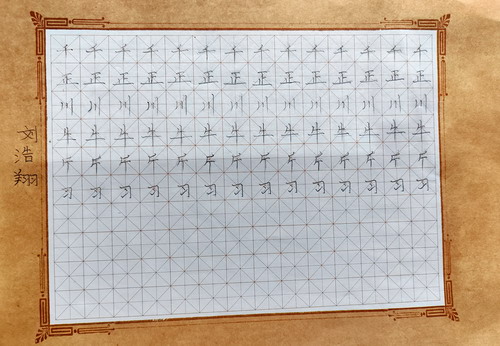 千千千千千千千千千千千千千千
正正正正正正正正正正正正正正
川川川川川川川川川川川川川川
牛牛牛牛牛牛牛牛牛牛牛牛牛牛
斤斤斤斤斤斤斤斤斤斤斤斤斤斤
习习习习习习习习习习习习习习
刘浩翔